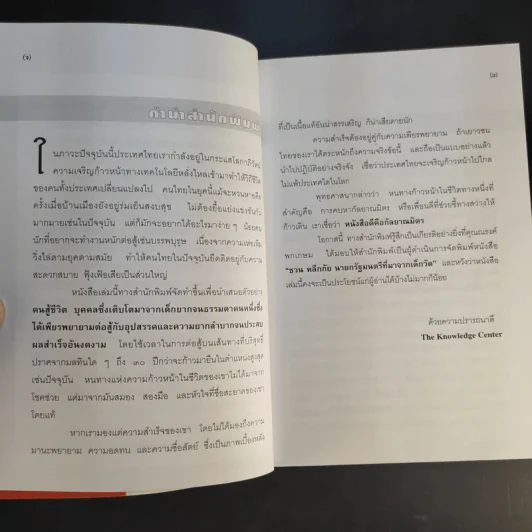 (จ)
คำนำสำนักพิมพ์
ในภาวะปัจจุบันนี้ประเทศไทยเรากำลังอยู่ในกระแสโลกาภิวัตน์
ความเจริญก้าวหน้าทางเทคโนโลยีหลั่งไหลเข้ามาทำให้วิถีชีวิต
ของคนทั้งประเทศเปลี่ยนแปลงไป คนไทยในยุคนี้แม้จะหวนหาอดีต
ครั้งเมื่อบ้านเมืองยังอยู่ร่มเย็นสงบสุข ไม่ต้องยื้อแย่งแข่งขันกัน
มากมายเช่นในปัจจุบัน แต่ก็มักจะอยากได้อะไรมาง่าย ๆ น้อยคน
นักที่อยากจะทำงานหนักต่อสู้เช่นบรรพบุรุษ เนื่องจากความเหยียบ
วิ่งไล่ตามยุคตามสมัย ทำให้คนไทยในปัจจุบันยึดติดอยู่กับความ
สะดวกสบาย ฟุ้งเฟ้อเสียเป็นส่วนใหญ่
หนังสือเล่มนี้ทางสำนักพิมพ์จัดทำขึ้นเพื่อนำเสนอตัวอย่าง
คนสู้ชีวิต บุคคลซึ่งเติบโตมาจากเด็กยากจนธรรมดาคนหนึ่งซึ่ง
ได้เพียรพยายามต่อสู้กับอุปสรรคและความยากลำบากจนประสบ
ผลสำเร็จอันงดงาม โดยใช้เวลาในการต่อสู้บนเส้นทางที่บริสุทธิ์
ปราศจากมลทินใด ๆ ถึง ๓๐ ปีกว่าจะก้าวมายืนในตำแหน่งสูงสุด
เช่นปัจจุบัน หนทางแห่งความก้าวหน้าในชีวิตของเขาไม่ได้มาจาก
โชคช่วย แต่มาจากมันสมอง สองมือ และหัวใจที่ซื่อสะอาดของเขา
โดยแท้
หากเรามองแต่ความสำเร็จของเขา โดยไม่ได้มองถึงความ
มานะพยายาม ความอดทน และความซื่อสัตย์ ซึ่งเป็นภาพเบื้องหลัง
(ฉ)
ที่เป็นเนื้อแท้อันน่าสรรเสริญ ก็น่าเสียดายนัก
ความสำเร็จต้องอยู่คู่กับความเพียรพยายาม ถ้าเยาวชน
ไทยของเราได้ตระหนักถึงความจริงข้อนี้ และถือเป็นแบบอย่างแล้ว
นำไปปฏิบัติอย่างจริงจัง เชื่อว่าประเทศไทยจะเจริญก้าวหน้าไปไกล
ไม่แพ้ประเทศใดในโลก
พุทธศาสนากล่าวว่า หนทางก้าวหน้าในชีวิตทางหนึ่งที่
สำคัญคือ การคบหากัลยาณมิตร หรือเพื่อนดีที่ช่วยชี้ทางสว่างให้
ก้าวเดิน เราเชื่อว่า หนังสือดีคือกัลยาณมิตร
โอกาสนี้ ทางสำนักพิมพ์รู้สึกเป็นเกียรติอย่างยิ่งที่คุณณรงค์
พกเกษม ได้มอบให้สำนักพิมพ์เป็นผู้ดำเนินการจัดพิมพ์หนังสือ
"ชวน หลีกภัย นายกรัฐมนตรีที่มาจากเด็กวัด" และหวังว่าหนังสือ
เล่มนี้คงจะเป็นประโยชน์แก่ผู้อ่านได้บ้างไม่มากก็น้อย
ด้วยความปรารถนาดี
The Knowledge Center